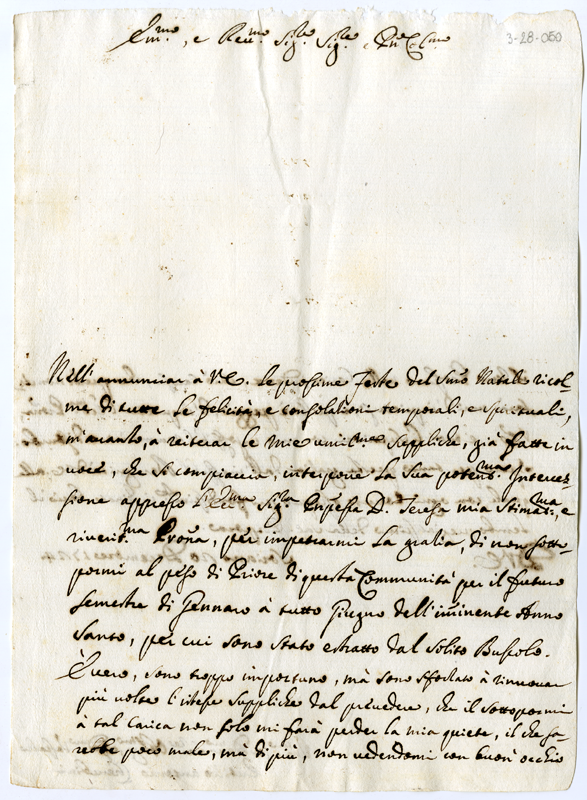 3-28-050
Em.mo, e Rev.mo Sig.re Sig.re e P̃ñe Col.mo
Nell'annunciar à V.E. le prossime Feste del Smo Natale ricol-
me di tutte le felicità, e consolationi temporali, e spirituali,
m'avanzo, à reiterar le mie umil.me suppliche, già fatte in
voce, che si compiaccia, interporre la sua poten.ma Interces-
sione appresso l'Ecc.ma Sig.ra Prñpessa D. Teresa mia Stimat.ma, e
riverit.ma Prõna, per impetrarmi la gratia, di non sotto-
pormi al peso di Priore di questa Communità per il futuro
semestre di Gennaro à tutto Giugno dell'imminente Anno
Santo, per cui sono stato estratto dal solito Bussolo.
È vero, sono troppo importuno, mà sono sforzato à rinnovar
più volte l'istesse suppliche dal prevedere, che il sottopormi
à tal carica non solo mi farà perder la mia quiete, il che sa-
rebbe poco male, mà di più, non vedendomi con buon occhio